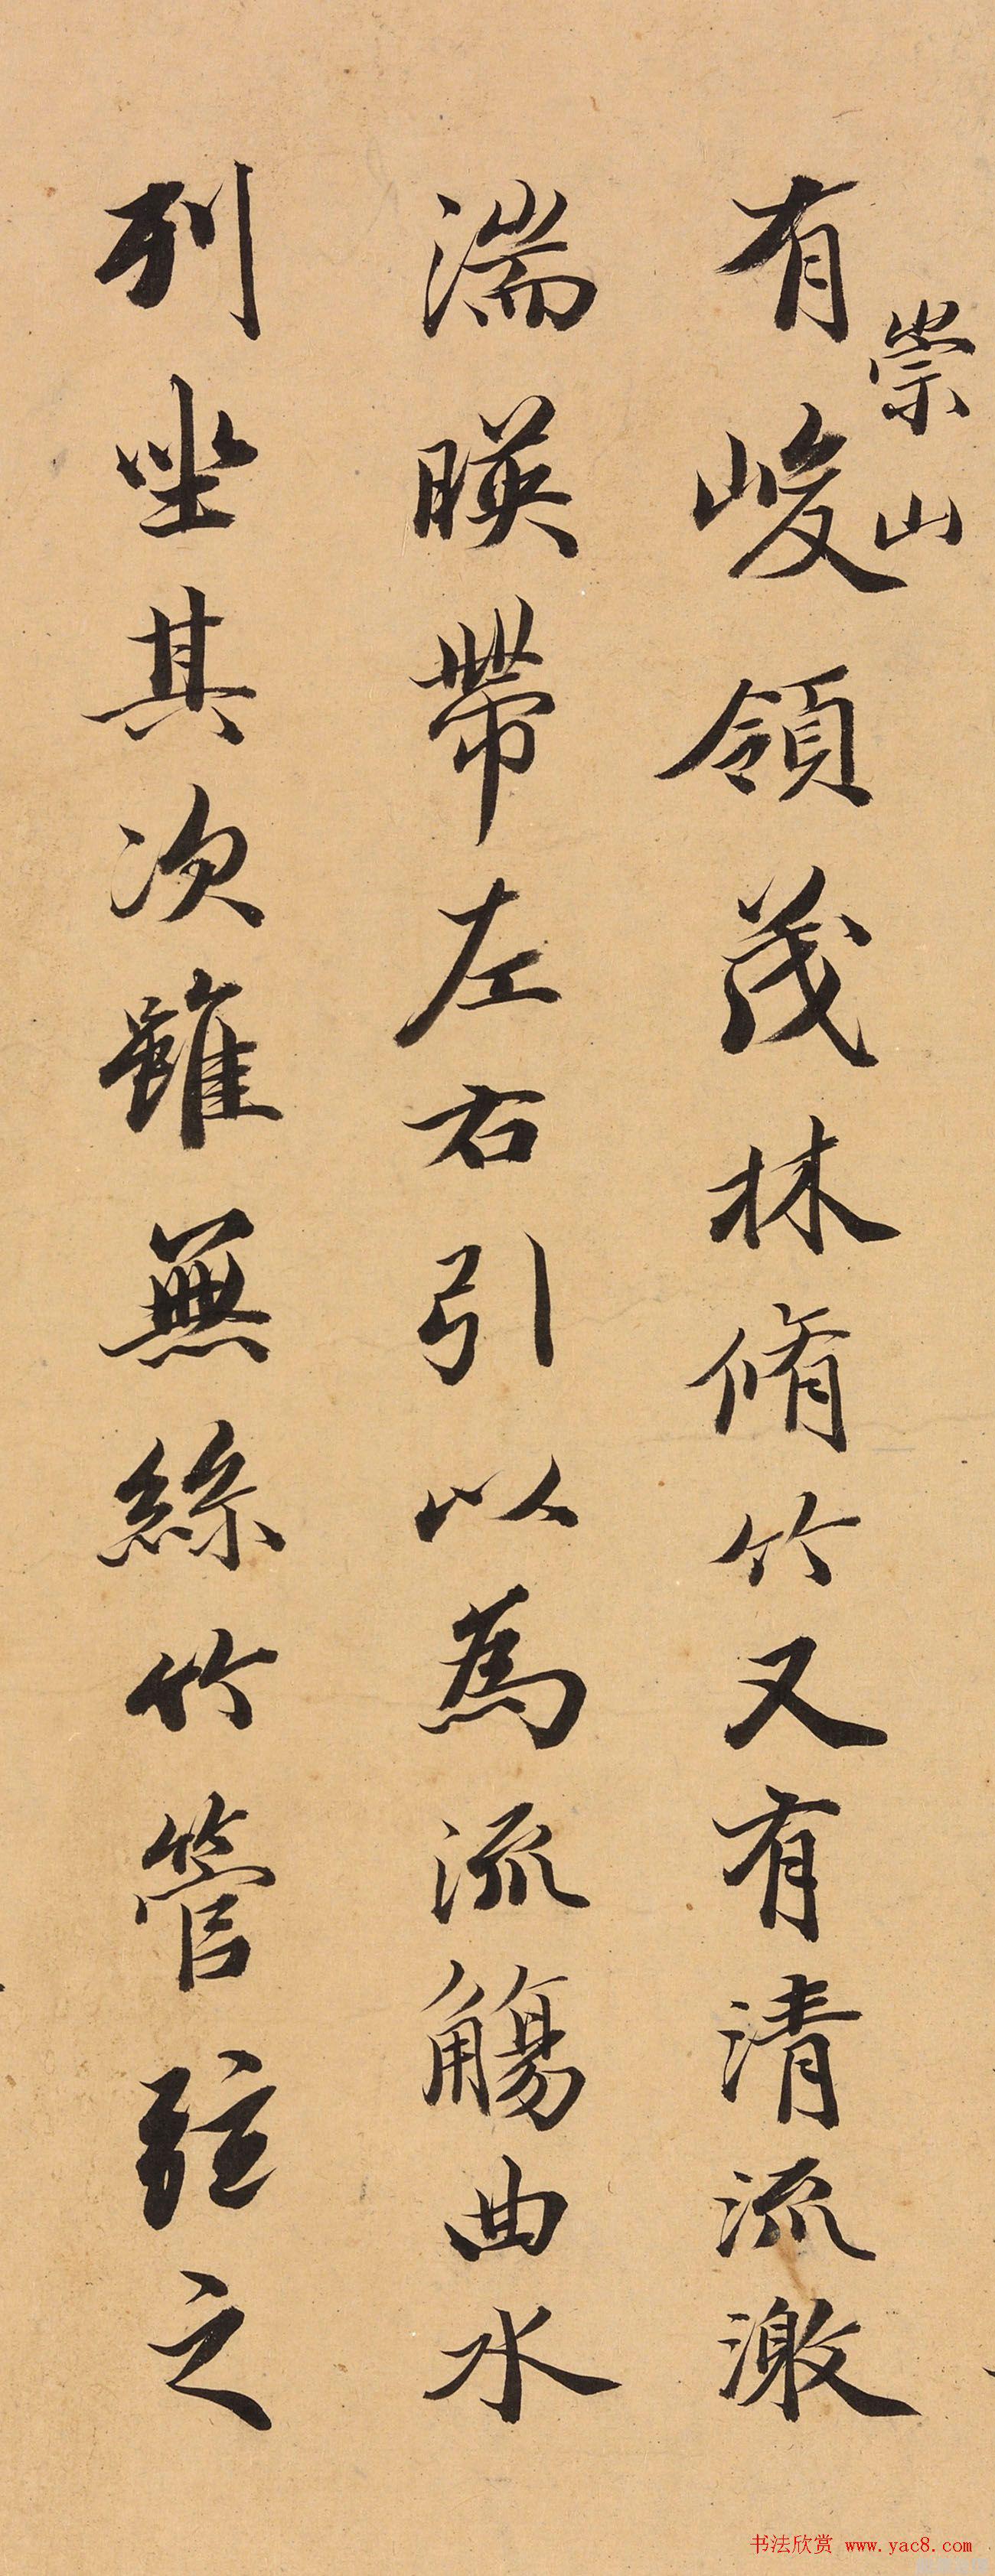 有崇山峻領茂林脩竹又有清流激
湍暎帶左右引以為流觴曲水
列坐其次雖無絲竹管弦之
书法欣赏 www.yac8.com